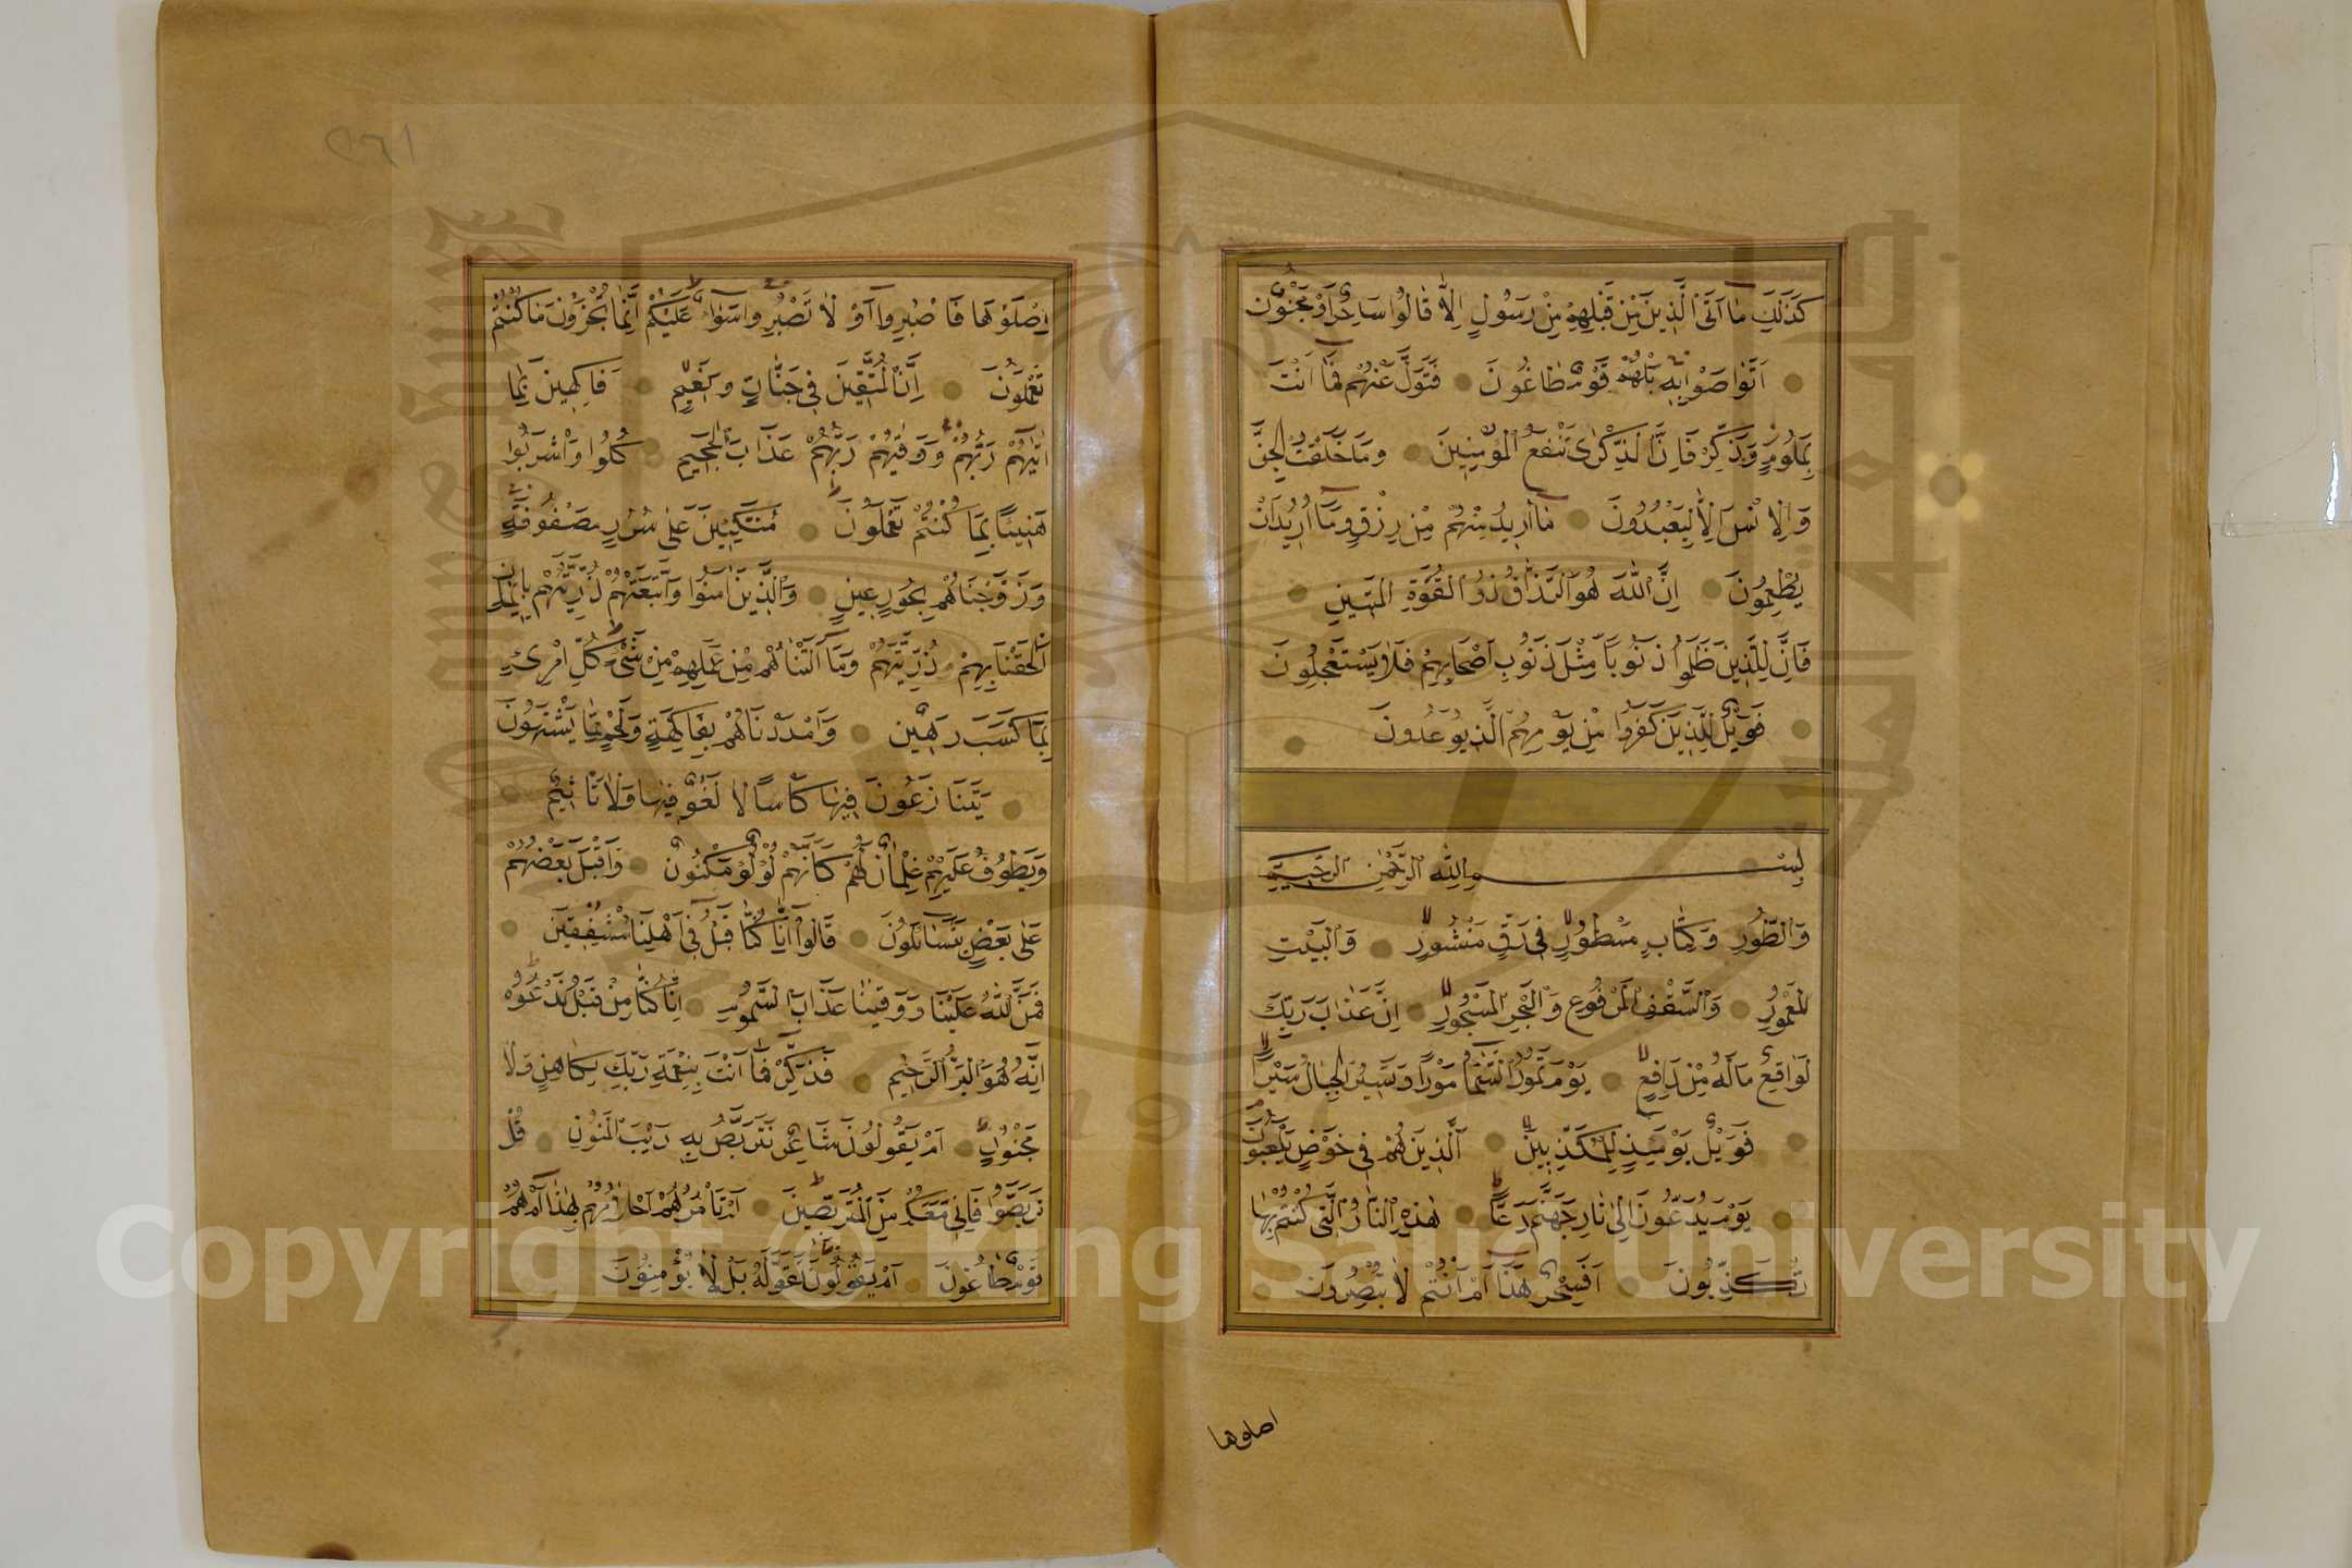 كَذٰلِكَ مَا اَتَى الَّذِينَ مِنْ قَبْلِهِمْ مِنْ رَسُولٍ اِلَّا قَالُوا سَاحِرٌ اَوْ مَجْنُونٌ
اَتَوَاصَوْا بِهِ بَلْ هُمْ قَوْمٌ طَاغُونَ فَتَوَلَّ عَنْهُمْ فَمَا اَنْتَ
بِمَلُومٍ وَذَكِّرْ فَاِنَّ الذِّكْرٰى تَنْفَعُ الْمُؤْمِنِينَ وَمَا خَلَقْتُ الْجِنَّ
وَالْاِنْسَ اِلَّا لِيَعْبُدُونَ مَا اُرِيدُ مِنْهُمْ مِنْ رِزْقٍ وَمَا اُرِيدُ اَنْ
يُطْعِمُونَ اِنَّ اللّٰهَ هُوَ الرَّزَّاقُ ذُو الْقُوَّةِ الْمَتِينِ
فَاِنَّ لِلَّذِينَ ظَلَمُوا ذَنُوبًا مِثْلَ ذَنُوبِ اَصْحَابِهِمْ فَلَا يَسْتَعْجِلُونَ
فَوَيْلٌ لِلَّذِينَ كَفَرُوا مِنْ يَوْمِهِمُ الَّذِي يُوعَدُونَ
بِسْمِ اللّٰهِ الرَّحْمٰنِ الرَّحِيمِ
وَالطُّورِ وَكِتَابٍ مَسْطُورٍ فِي رَقٍّ مَنْشُورٍ وَالْبَيْتِ
الْمَعْمُورِ وَالسَّقْفِ الْمَرْفُوعِ وَالْبَحْرِ الْمَسْجُورِ اِنَّ عَذَابَ رَبِّكَ
لَوَاقِعٌ مَا لَهُ مِنْ دَافِعٍ يَوْمَ تَمُورُ السَّمَاءُ مَوْرًا وَتَسِيرُ الْجِبَالُ سَيْرًا
فَوَيْلٌ يَوْمَئِذٍ لِلْمُكَذِّبِينَ اَلَّذِينَ هُمْ فِي خَوْضٍ يَلْعَبُونَ
يَوْمَ يُدَعُّونَ اِلٰى نَارِ جَهَنَّمَ دَعًّا هٰذِهِ النَّارُ الَّتِي كُنْتُمْ بِهَا
تُكَذِّبُونَ اَفَسِحْرٌ هٰذَا اَمْ اَنْتُمْ لَا تُبْصِرُونَ
اصلوها
٢٦١
اِصْلَوْهَا فَاصْبِرُوا اَوْ لَا تَصْبِرُوا سَوَاءٌ عَلَيْكُمْ اِنَّمَا تُجْزَوْنَ مَا كُنْتُمْ
تَعْمَلُونَ اِنَّ الْمُتَّقِينَ فِي جَنَّاتٍ وَنَعِيمٍ فَاكِهِينَ بِمَا
اٰتٰيهُمْ رَبُّهُمْ وَوَقٰيهُمْ رَبُّهُمْ عَذَابَ الْجَحِيمِ كُلُوا وَاشْرَبُوا
هَنِيئًا بِمَا كُنْتُمْ تَعْمَلُونَ مُتَّكِئِينَ عَلٰى سُرُرٍ مَصْفُوفَةٍ
وَزَوَّجْنَاهُمْ بِحُورٍ عِينٍ وَالَّذِينَ اٰمَنُوا وَاتَّبَعَتْهُمْ ذُرِّيَّتُهُمْ بِاِيمَانٍ
اَلْحَقْنَا بِهِمْ ذُرِّيَّتَهُمْ وَمَا اَلَتْنَاهُمْ مِنْ عَمَلِهِمْ مِنْ شَيْءٍ كُلُّ امْرِئٍ
بِمَا كَسَبَ رَهِينٌ وَاَمْدَدْنَاهُمْ بِفَاكِهَةٍ وَلَحْمٍ مِمَّا يَشْتَهُونَ
يَتَنَازَعُونَ فِيهَا كَأْسًا لَا لَغْوٌ فِيهَا وَلَا تَأْثِيمٌ
وَيَطُوفُ عَلَيْهِمْ غِلْمَانٌ لَهُمْ كَاَنَّهُمْ لُؤْلُؤٌ مَكْنُونٌ وَاَقْبَلَ بَعْضُهُمْ
عَلٰى بَعْضٍ يَتَسَاءَلُونَ قَالُوا اِنَّا كُنَّا قَبْلُ فِي اَهْلِنَا مُشْفِقِينَ
فَمَنَّ اللّٰهُ عَلَيْنَا وَوَقٰينَا عَذَابَ السَّمُومِ اِنَّا كُنَّا مِنْ قَبْلُ نَدْعُوهُ
اِنَّهُ هُوَ الْبَرُّ الرَّحِيمُ فَذَكِّرْ فَمَا اَنْتَ بِنِعْمَةِ رَبِّكَ بِكَاهِنٍ وَلَا
مَجْنُونٍ اَمْ يَقُولُونَ شَاعِرٌ نَتَرَبَّصُ بِهِ رَيْبَ الْمَنُونِ قُلْ
تَرَبَّصُوا فَاِنِّي مَعَكُمْ مِنَ الْمُتَرَبِّصِينَ اَمْ تَأْمُرُهُمْ اَحْلَامُهُمْ بِهٰذَا اَمْ هُمْ
قَوْمٌ طَاغُونَ اَمْ يَقُولُونَ تَقَوَّلَهُ بَلْ لَا يُؤْمِنُونَ
Copyright © King Saud University